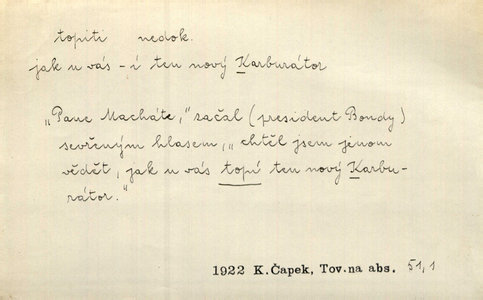 topiti nedok.
jak u vás -í ten nový Karburátor
„Pane Macháte,“ začal (president Bondy)
sevřeným hlasem, „chtěl jsem jenom
vědět, jak u vás topí ten nový Karbu-
rátor.“
1922 K. Čapek, Tov. na abs. 51,1